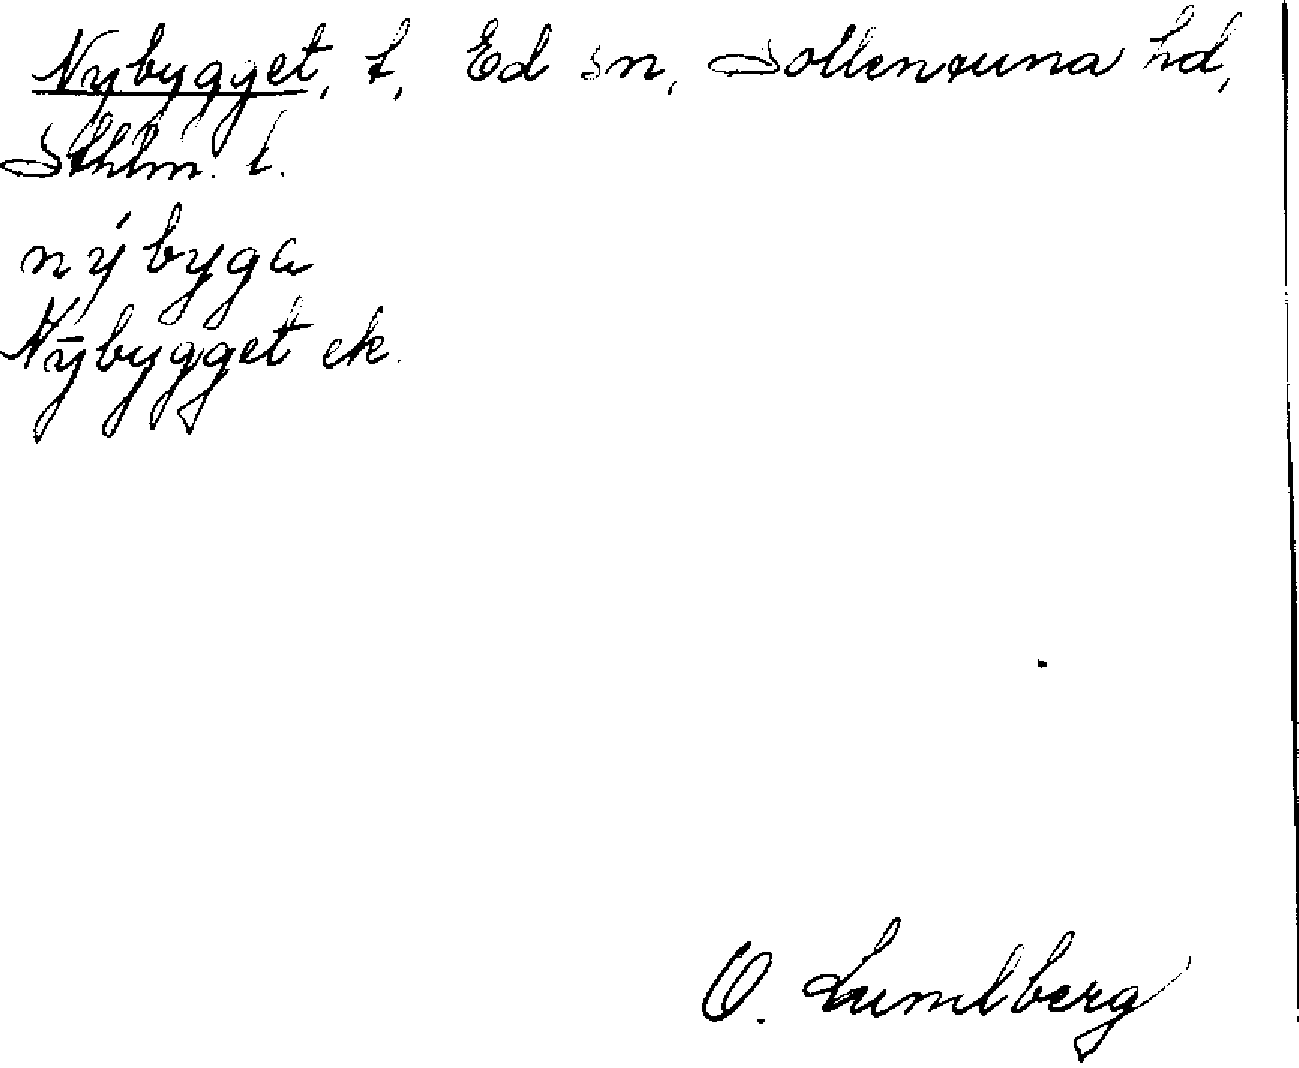 Nybygget, t, Ed sn, Sollentuna hd,
Sthlm. l.
nýbyga
Nȳbygget ek.
O. Lundberg